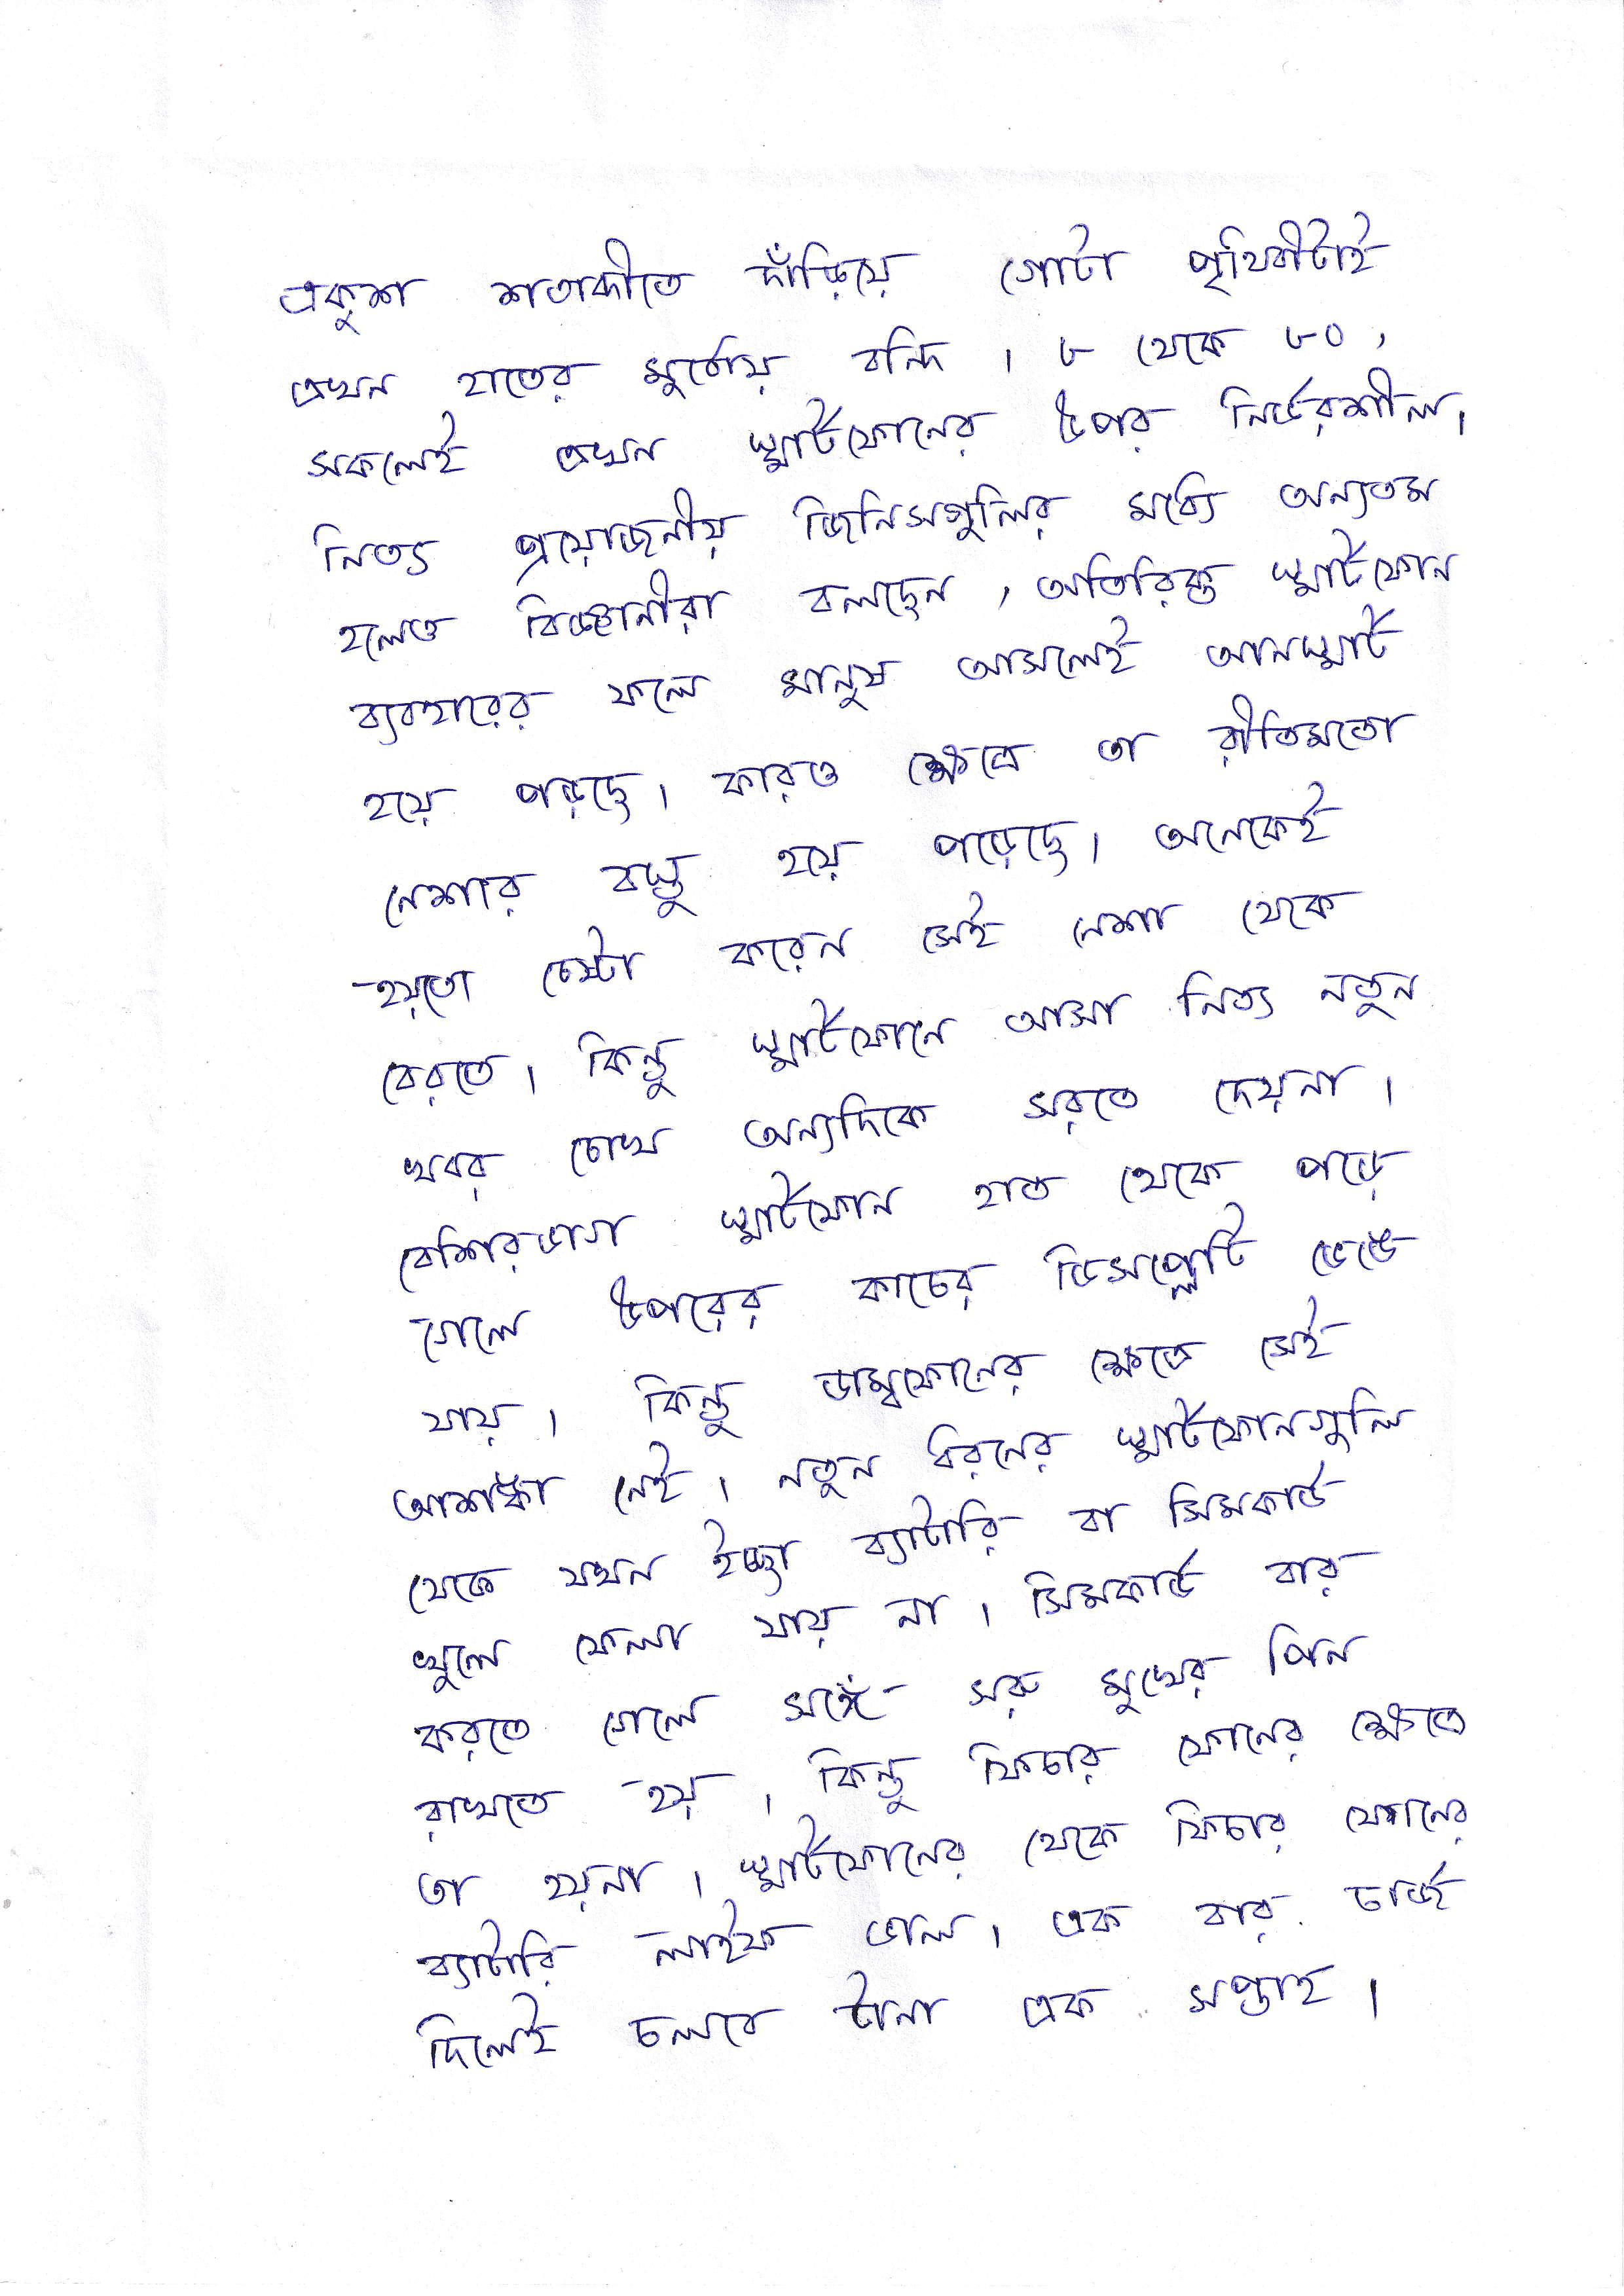 একুশ শতাব্দীতে দাঁড়িয়ে গোটা পৃথিবীটাই
এখন হাতের মুঠোয় বন্দি । ৮ থেকে ৮০ ,
সকলেই এখন স্মার্টফোনের উপর নির্ভরশীল ।
নিত্য প্রয়োজনীয় জিনিসগুলির মধ্যে অন্যতম
হলেও বিজ্ঞানীরা বলছেন , অতিরিক্ত স্মার্টফোন
ব্যবহারের ফলে মানুষ আসলেই আনস্মার্ট
হয়ে পড়ছে । কারও ক্ষেত্রে তা রীতিমতো
নেশার বস্তু হয়ে পড়েছে । অনেকেই
হয়তো চেষ্টা করেন সেই নেশা থেকে
বেরতে । কিন্তু স্মার্টফোনে আসা নিত্য নতুন
খবর চোখ অন্যদিকে সরতে দেয়না ।
বেশিরভাগ স্মার্টফোন হাত থেকে পড়ে
গেলে উপরের কাচের ডিসপ্লেটি ভেঙে
যায় । কিন্তু ডাম্বফোনের ক্ষেত্রে সেই
আশঙ্কা নেই । নতুন ধরনের স্মার্টফোনগুলি
থেকে যখন ইচ্ছা ব্যাটারি বা সিমকার্ড
খুলে ফেলা যায় না । সিমকার্ড বার
করতে গেলে সঙ্গে সরু মুখের পিন
রাখতে হয় , কিন্তু ফিচার ফোনের ক্ষেত্রে
তা হয়না । স্মার্টফোনের থেকে ফিচার ফোনের
ব্যাটারি লাইফ ভাল । এক বার চার্জ
দিলেই চলবে টানা এক সপ্তাহ ।